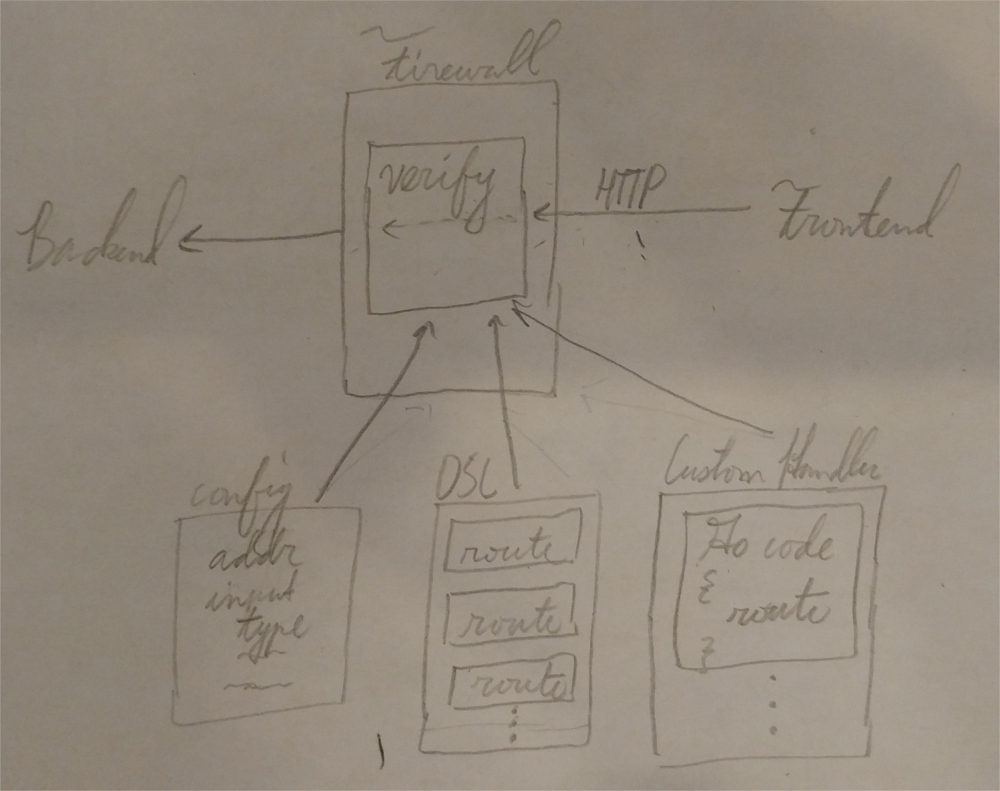 Firewall
verify
HTTP
Backend
Frontend
config
addr
input
type
DSL
route
route
route
Custom Handler
Go code
{
route
}